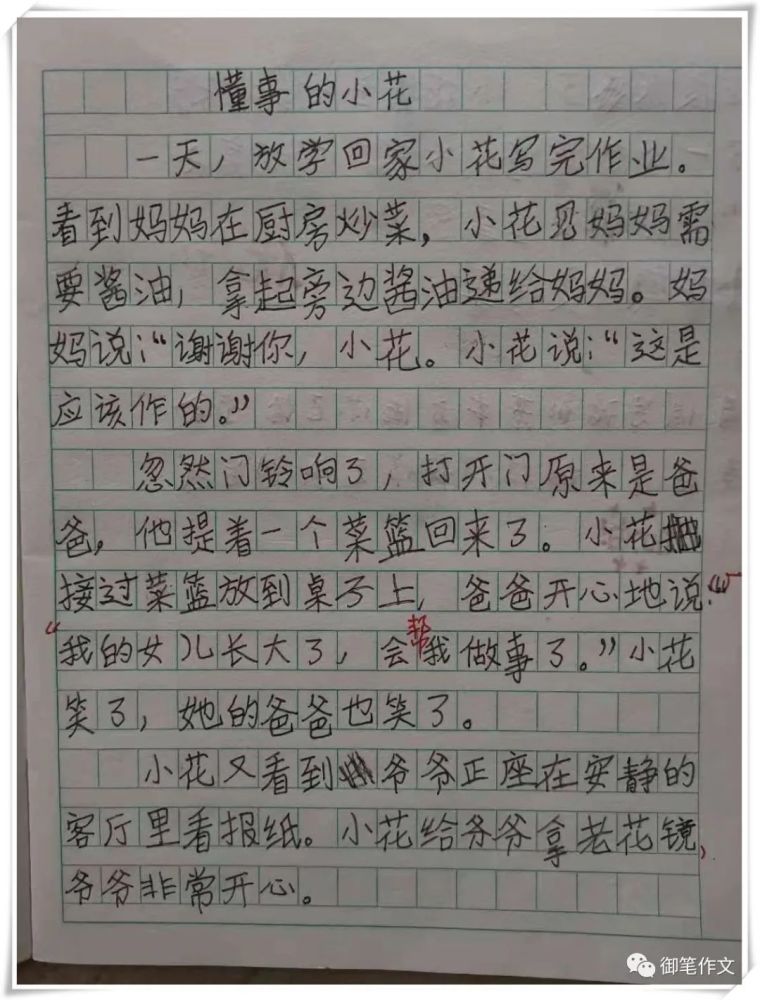 懂事的小花
一天，放学回家小花写完作业。
看到妈妈在厨房炒菜，小花见妈妈需
要酱油，拿起旁边酱油递给妈妈。妈
妈说：“谢谢你，小花。小花说：“这是
应该作的。”
忽然门铃响了，打开门原来是爸
爸，他提着一个菜篮回来了。小花
接过菜篮放到桌子上，爸爸开心地说：
“我的女儿长大了，会帮我做事了。”小花
笑了，她的爸爸也笑了。
小花又看到爷爷正座在安静的
客厅里看报纸。小花给爷爷拿老花镜，
爷爷非常开心。
御笔作文